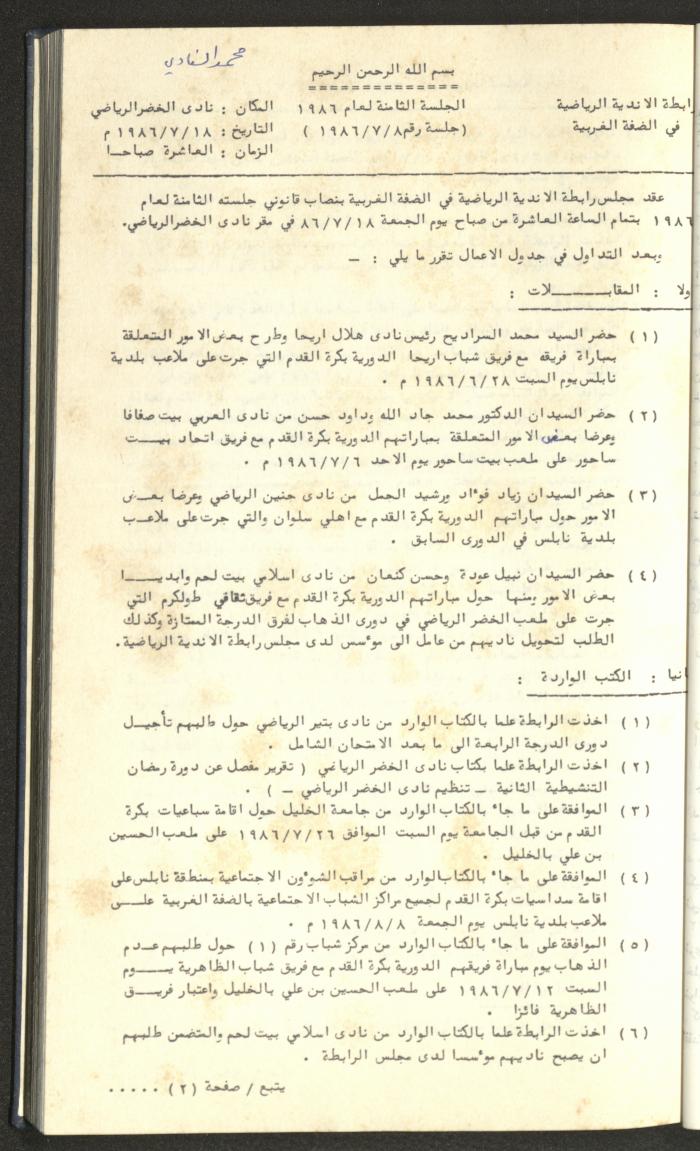 بسم الله الرحمن الرحيم
رابطة الاندية الرياضية
في الضفة الغربية
الجلسة الثامنة لعام ١٩٨٦
(جلسة رقم ١٩٨٦/٧/٨ )
المكان : نادى الخضر الرياضي
التاريخ : ١٩٨٦/٧/١٨ م
الزمان : العاشرة صباحا
عقد مجلس رابطة الاندية الرياضية في الضفة الغربية بنصاب قانوني جلسته الثامنة لعام
١٩٨٦ بتمام الساعة العاشرة من صباح يوم الجمعة ٨٦/٧/١٨ في مقر نادى الخضر الرياضي.
وبعد التداول في جدول الاعمال تقرر ما يلي : ـ
ولا : المقابـــــلات :
(١) حضر السيد محمد السراديح رئيس نادى هلال اريحا وطرح بعض الامور المتعلقة
بمباراة فريقه مع فريق شباب اريحا الدورية بكرة القدم التي جرت على ملاعب بلدية
نابلس يوم السبت ١٩٨٦/٦/٢٨ م .
(٢) حضر السيدان الدكتور محمد جاد الله وداود حسن من نادى العربي بيت صفافا
وعرضا بعض الامور المتعلقة بمباراتهم الدورية بكرة القدم مع فريق اتحاد بيـــت
ساحور على ملعب بيت ساحور يوم الاحد ١٩٨٦/٧/٦ م .
(٣) حضر السيدان زياد فوءاد ورشيد الحمل من نادى جنين الرياضي وعرضا بعــض
الامور حول مباراتهم الدورية بكرة القدم مع اهلي سلوان والتي جرت على ملاعــب
بلدية نابلس في الدورى السابق .
(٤) حضر السيدان نبيل عودة وحسن كنعان من نادى اسلامي بيت لحم وابديــــا
بعض الامور ومنها حول مباراتهم الدورية بكرة القدم مع فريق ثقافي طولكرم التي
جرت على ملعب الخضر الرياضي في دورى الذهاب لفرق الدرجة الممتازة وكذلك
الطلب لتحويل ناديهم من عامل الى موءسس لدى مجلس رابطة الاندية الرياضية.
انيا : الكتب الواردة :
(١) اخذت الرابطة علما بالكتاب الوارد من نادى بتير الرياضي حول طلبهم تأجيــل
دورى الدرجة الرابعة الى ما بعد الامتحان الشامل .
(٢) اخذت الرابطة علما بكتاب نادى الخضر الرياضي ( تقرير مفصل عن دورة رمضان
التنشيطية الثانية ــ تنظيم نادى الخضر الرياضي ــ ) .
(٣) الموافقة على ما جاء بالكتاب الوارد من جامعة الخليل حول اقامة سباعيات بكرة
القدم من قبل الجامعة يوم السبت الموافق ١٩٨٦/٧/٢٦ على ملعب الحسين
بن علي بالخليل .
(٤) الموافقة على ما جاء بالكتاب الوارد من مراقب الشوءون الاجتماعية بمنطقة نابلس على
اقامة سداسيات بكرة القدم لجميع مراكز الشباب الاجتماعية بالضفة الغربية علـــى
ملاعب بلدية نابلس يوم الجمعة ١٩٨٦/٨/٨ م .
(٥) الموافقة على ما جاء بالكتاب الوارد من مركز شباب رقم (١) حول طلبهم عــدم
الذهاب يوم مباراة فريقهم الدورية بكرة القدم مع فريق شباب الظاهرية يــــوم
السبت ١٩٨٦/٧/١٢ على ملعب الحسين بن علي بالخليل واعتبار فريـــق
الظاهرية فائزا .
(٦) اخذت الرابطة علما بالكتاب الوارد من نادى اسلامي بيت لحم والمتضمن طلبهم
ان يصبح ناديهم موءسسا لدى مجلس الرابطة .
يتبع / صفحة (٢) .....